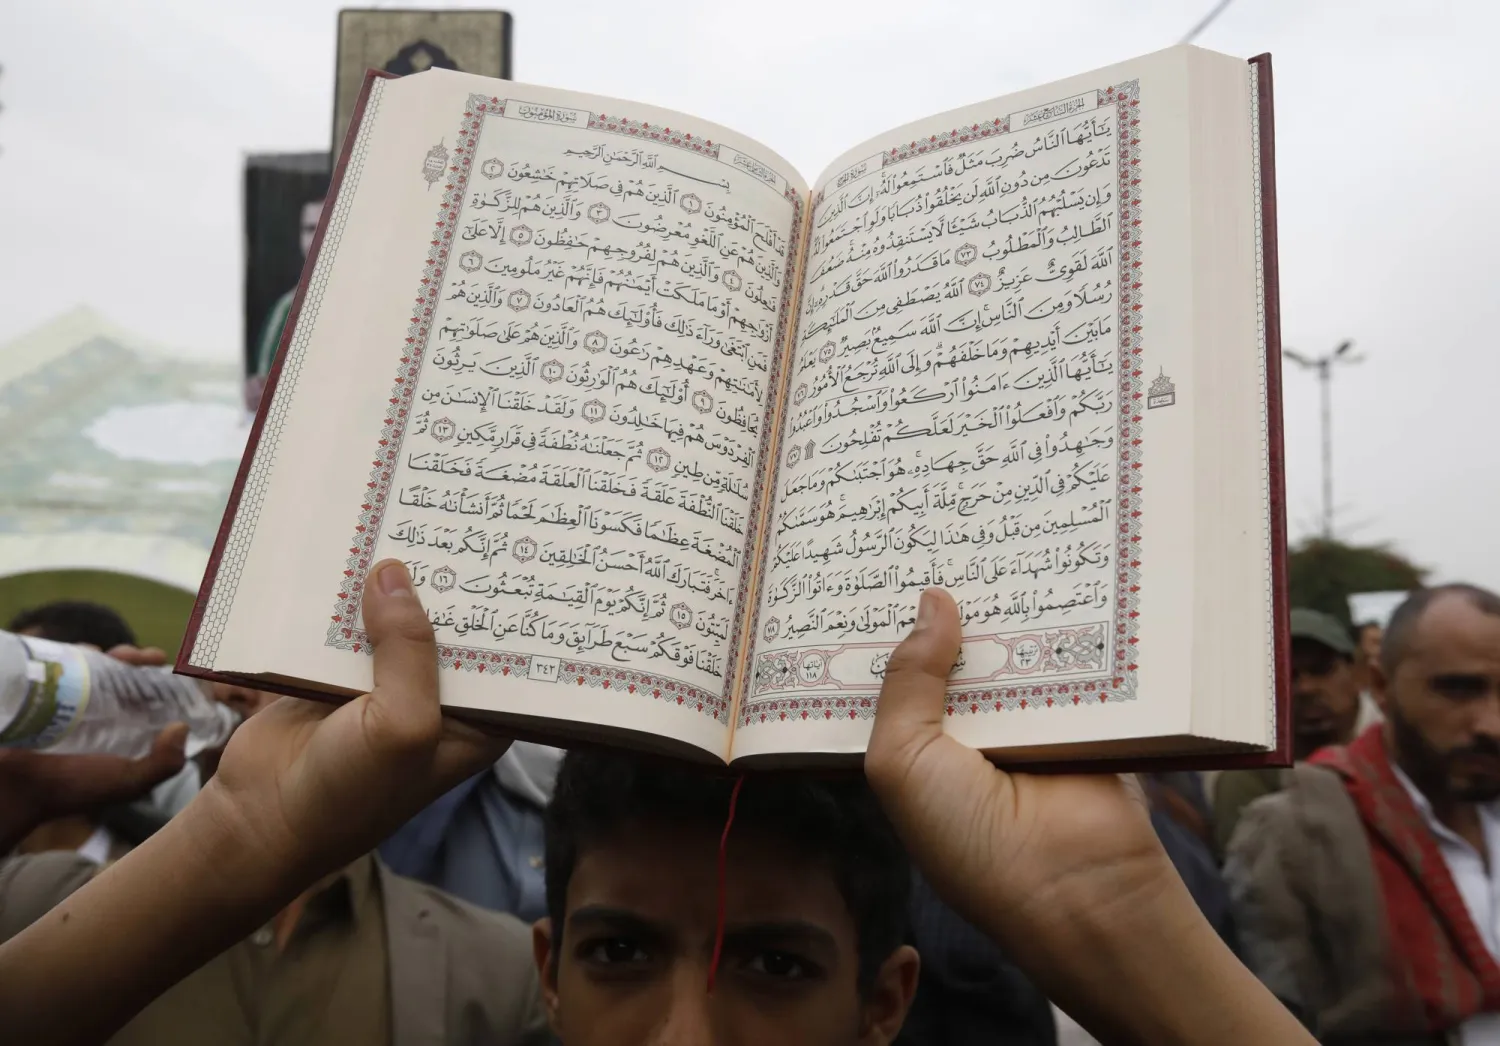 الجزء السابع عشر
سورة الحج
يَٰٓأَيُّهَا ٱلنَّاسُ ضُرِبَ مَثَلٌ فَٱسْتَمِعُوا۟ لَهُۥٓ إِنَّ ٱلَّذِينَ
تَدْعُونَ مِن دُونِ ٱللَّهِ لَن يَخْلُقُوا۟ ذُبَابًا وَلَوِ ٱجْتَمَعُوا۟ لَهُۥ
وَإِن يَسْلُبْهُمُ ٱلذُّبَابُ شَيْـًٔا لَّا يَسْتَنقِذُوهُ مِنْهُ ضَعُفَ
ٱلطَّالِبُ وَٱلْمَطْلُوبُ ٧٣ مَا قَدَرُوا۟ ٱللَّهَ حَقَّ قَدْرِهِۦٓ إِنَّ
ٱللَّهَ لَقَوِىٌّ عَزِيزٌ ٧٤ ٱللَّهُ يَصْطَفِى مِنَ ٱلْمَلَٰٓئِكَةِ
رُسُلًا وَمِنَ ٱلنَّاسِ إِنَّ ٱللَّهَ سَمِيعٌۢ بَصِيرٌ ٧٥ يَعْلَمُ
مَا بَيْنَ أَيْدِيهِمْ وَمَا خَلْفَهُمْ وَإِلَى ٱللَّهِ تُرْجَعُ ٱلْأُمُورُ ٧٦
يَٰٓأَيُّهَا ٱلَّذِينَ ءَامَنُوا۟ ٱرْكَعُوا۟ وَٱسْجُدُوا۟ وَٱعْبُدُوا۟
رَبَّكُمْ وَٱفْعَلُوا۟ ٱلْخَيْرَ لَعَلَّكُمْ تُفْلِحُونَ ۩ ٧٧
وَجَٰهِدُوا۟ فِى ٱللَّهِ حَقَّ جِهَادِهِۦ هُوَ ٱجْتَبَىٰكُمْ وَمَا جَعَلَ
عَلَيْكُمْ فِى ٱلدِّينِ مِنْ حَرَجٍ مِّلَّةَ أَبِيكُمْ إِبْرَٰهِيمَ هُوَ سَمَّىٰكُمُ
ٱلْمُسْلِمِينَ مِن قَبْلُ وَفِى هَٰذَا لِيَكُونَ ٱلرَّسُولُ شَهِيدًا عَلَيْكُمْ
وَتَكُونُوا۟ شُهَدَآءَ عَلَى ٱلنَّاسِ فَأَقِيمُوا۟ ٱلصَّلَوٰةَ وَءَاتُوا۟ ٱلزَّكَوٰةَ
وَٱعْتَصِمُوا۟ بِٱللَّهِ هُوَ فَنِعْمَ ٱلْمَوْلَىٰ وَنِعْمَ ٱلنَّصِيرُ ٧٨
ترتيبها ٢٣
آياتها ١١٨
سورة المؤمنون
بِسْمِ ٱللَّهِ ٱلرَّحْمَٰنِ ٱلرَّحِيمِ
قَدْ أَفْلَحَ ٱلْمُؤْمِنُونَ ١ ٱلَّذِينَ هُمْ فِى صَلَاتِهِمْ خَٰشِعُونَ ٢
وَٱلَّذِينَ هُمْ عَنِ ٱللَّغْوِ مُعْرِضُونَ ٣ وَٱلَّذِينَ هُمْ لِلزَّكَوٰةِ
فَٰعِلُونَ ٤ وَٱلَّذِينَ هُمْ لِفُرُوجِهِمْ حَٰفِظُونَ ٥ إِلَّا عَلَىٰٓ
أَزْوَٰجِهِمْ أَوْ مَا مَلَكَتْ أَيْمَٰنُهُمْ فَإِنَّهُمْ غَيْرُ مَلُومِينَ ٦
فَمَنِ ٱبْتَغَىٰ وَرَآءَ ذَٰلِكَ فَأُو۟لَٰٓئِكَ هُمُ ٱلْعَادُونَ ٧ وَٱلَّذِينَ هُمْ
لِأَمَٰنَٰتِهِمْ وَعَهْدِهِمْ رَٰعُونَ ٨ وَٱلَّذِينَ هُمْ عَلَىٰ صَلَوَٰتِهِمْ
يُحَافِظُونَ ٩ أُو۟لَٰٓئِكَ هُمُ ٱلْوَٰرِثُونَ ١٠ ٱلَّذِينَ يَرِثُونَ
ٱلْفِرْدَوْسَ هُمْ فِيهَا خَٰلِدُونَ ١١ وَلَقَدْ خَلَقْنَا ٱلْإِنسَٰنَ مِن
سُلَٰلَةٍ مِّن طِينٍ ١٢ ثُمَّ جَعَلْنَٰهُ نُطْفَةً فِى قَرَارٍ مَّكِينٍ ١٣ ثُمَّ
خَلَقْنَا ٱلنُّطْفَةَ عَلَقَةً فَخَلَقْنَا ٱلْعَلَقَةَ مُضْغَةً فَخَلَقْنَا
ٱلْمُضْغَةَ عِظَٰمًا فَكَسَوْنَا ٱلْعِظَٰمَ لَحْمًا ثُمَّ أَنشَأْنَٰهُ خَلْقًا
ءَاخَرَ فَتَبَارَكَ ٱللَّهُ أَحْسَنُ ٱلْخَٰلِقِينَ ١٤ ثُمَّ إِنَّكُم بَعْدَ ذَٰلِكَ
لَمَيِّتُونَ ١٥ ثُمَّ إِنَّكُمْ يَوْمَ ٱلْقِيَٰمَةِ تُبْعَثُونَ ١٦
خَلَقْنَا فَوْقَكُمْ سَبْعَ طَرَآئِقَ وَمَا كُنَّا عَنِ ٱلْخَلْقِ
٣٤٢